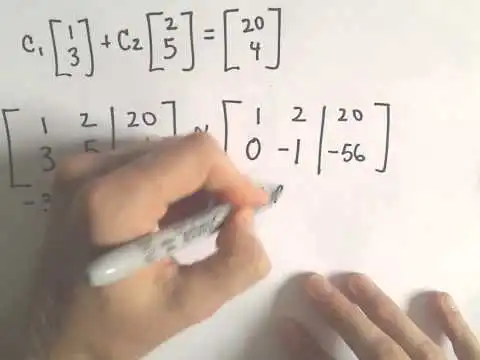 C₁ [1 3] + C₂ [2 5] = [20 4]
[1 2 | 20] ~ [1 2 | 20]
[3 5 | 0 -1 | -56]